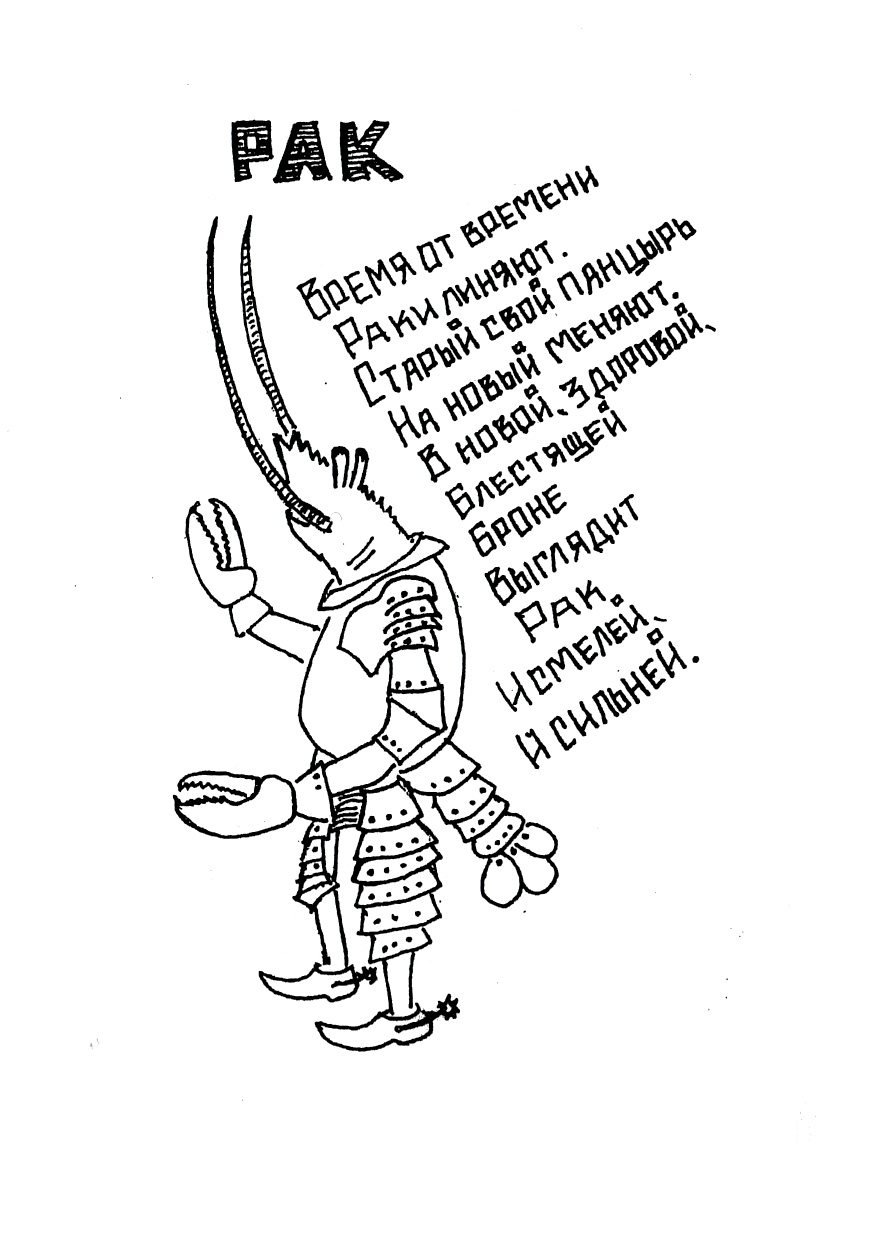 РАК
Время от времени
Раки линяют.
Старый свой панцырь
На новый меняют.
В новой, здоровой,
Блестящей
Броне
Выглядит
Рак
И смелей,
И сильней.